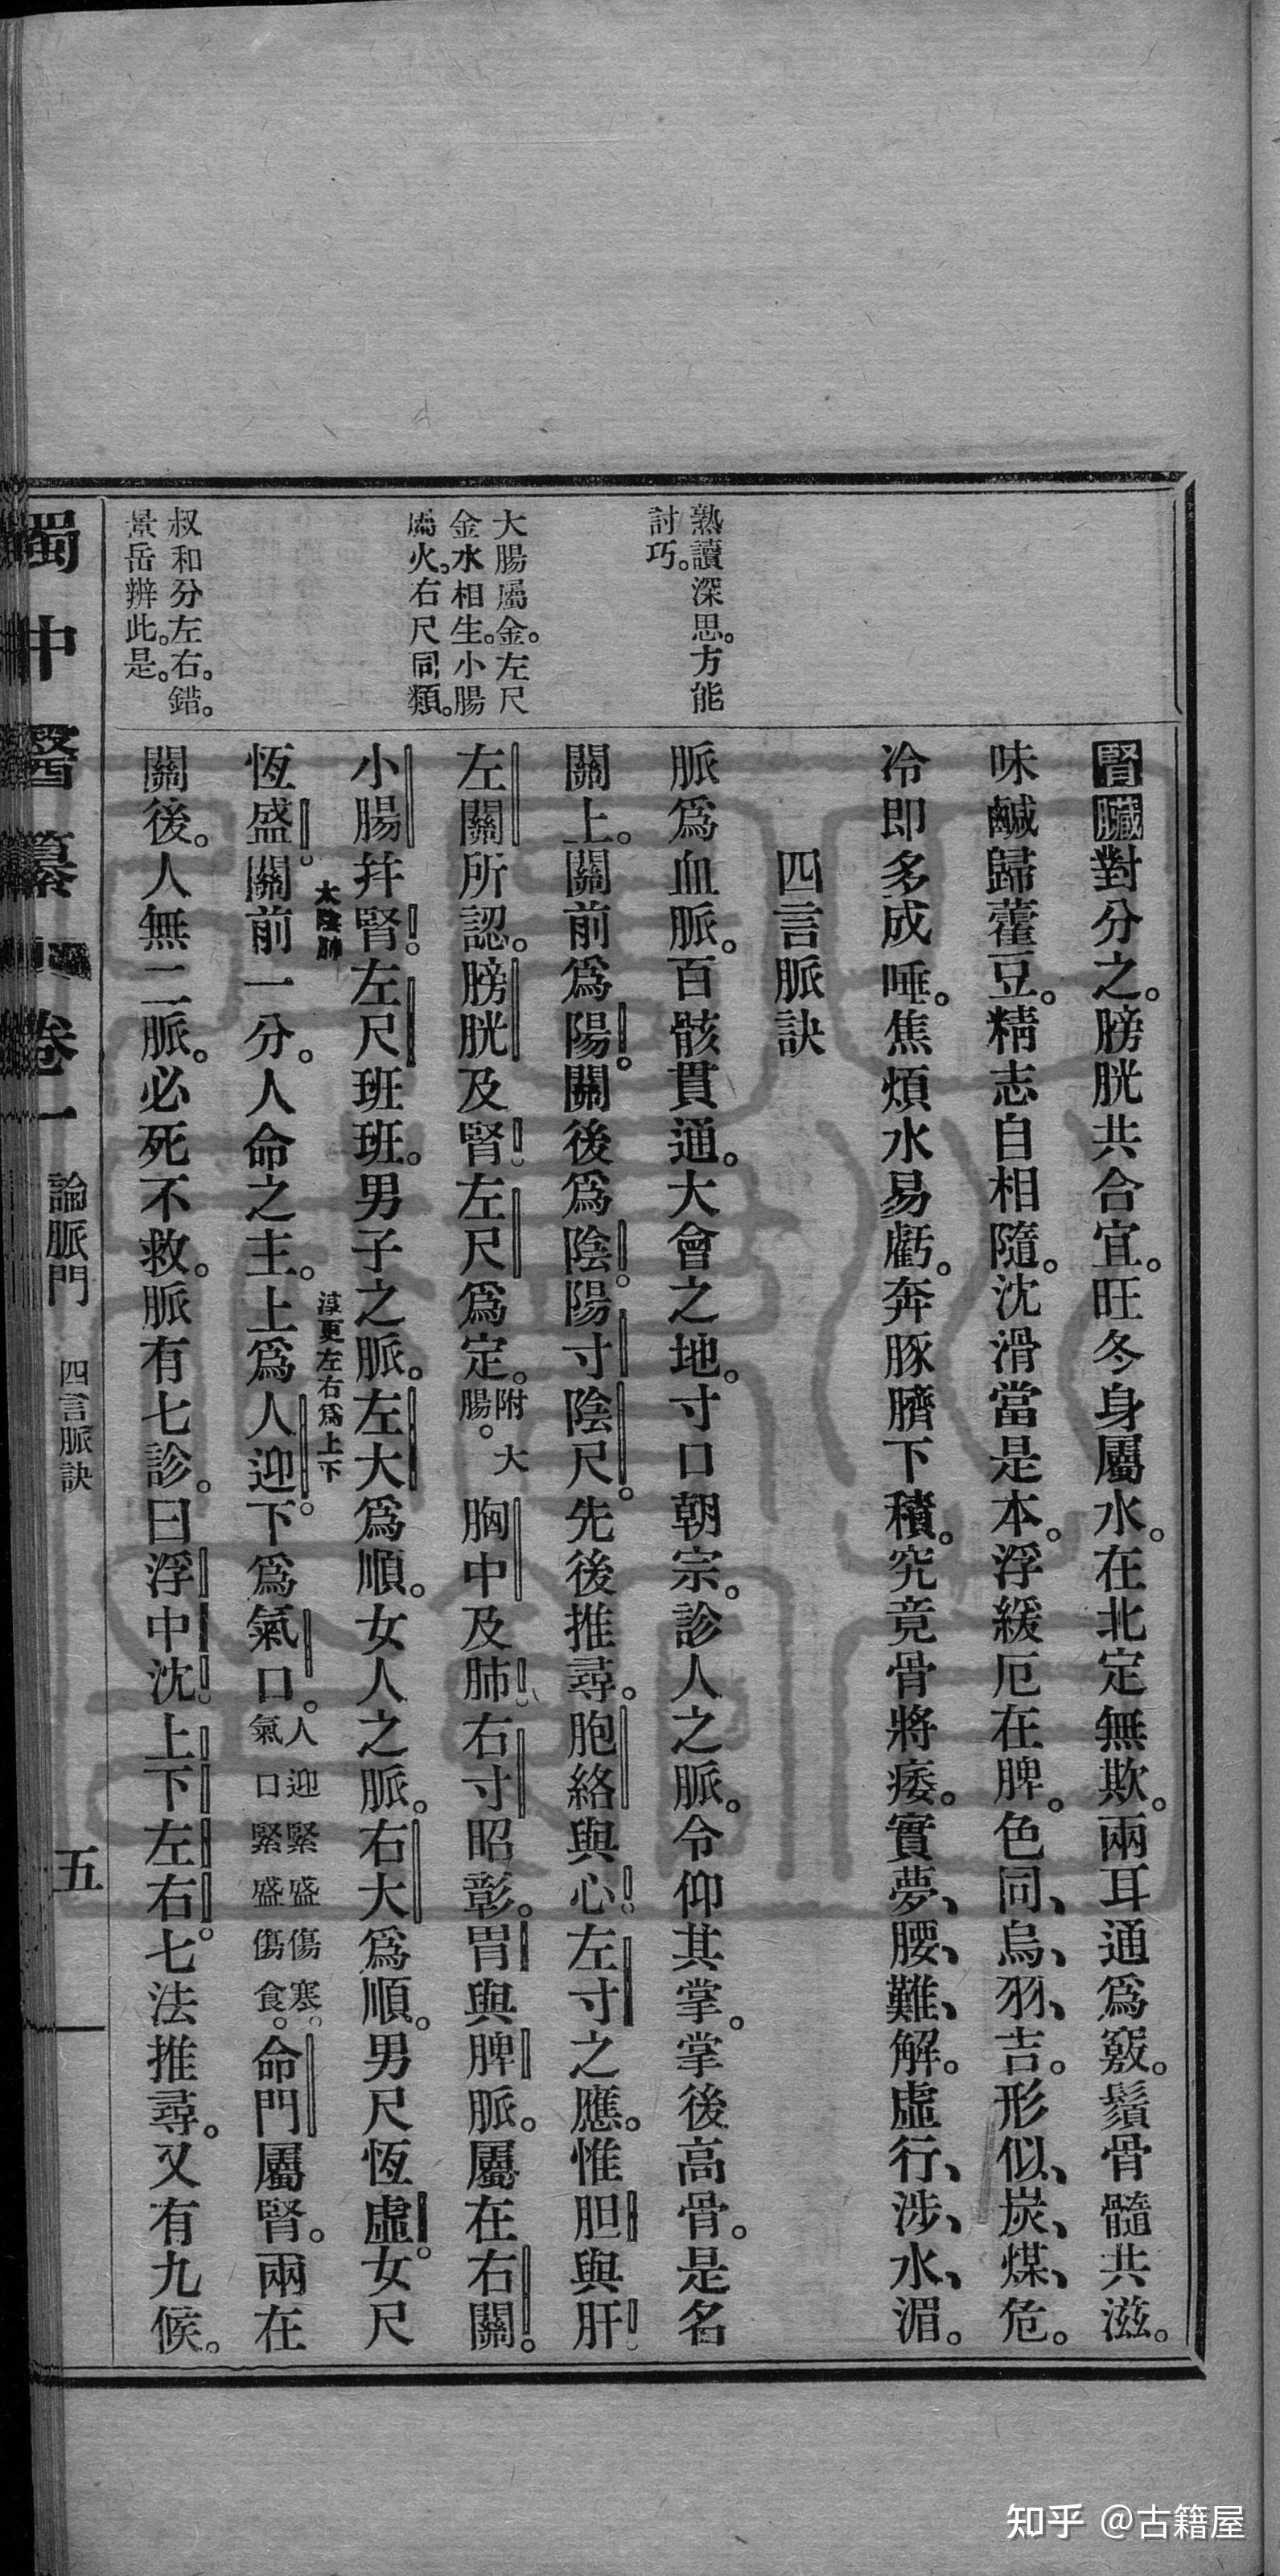 熟讀深思。方能
討巧。
大腸屬金。左尺
金水相生。小腸
屬火。右尺同類。
叔和分左右。錯。
景岳辨此。是。
腎臟對分之。膀胱共合宜。旺冬身屬水。在北定無欺。兩耳通爲竅。鬚骨髓共滋。
味鹹歸藿豆。精志自相隨。沈滑當是本。浮緩厄在脾。色同、烏、羽、吉。形似、炭、煤、危。
冷即多成唾。焦煩水易虧。奔豚臍下積。究竟骨將痿。實夢、腰、難、解。虛行、涉、水、湄。
四言脈訣
脈爲血脈。百骸貫通。大會之地。寸口朝宗。診人之脈。令仰其掌。掌後高骨。是名
關上。關前爲陽。關後爲陰。陽寸陰尺。先後推尋。胞絡與心。左寸之應。惟胆與肝。
左關所認。膀胱及腎。左尺爲定。附大腸。胸中及肺。右寸昭彰。胃與脾脈。屬在右關。
小腸幷腎。左尺班班。男子之脈。左大爲順。女人之脈。右大爲順。男尺恆虛。女尺
太陰肺
淳更左右爲上下
恆盛。關前一分。人命之主。上爲人迎。下爲氣口。人迎緊盛傷寒。氣口緊盛傷食。命門屬腎。兩在
關後。人無二脈。必死不救。脈有七診。曰浮中沈。上下左右。七法推尋。又有九候。
中醫纂 卷一 論脈門 四言脈訣 五
知乎 @古籍屋